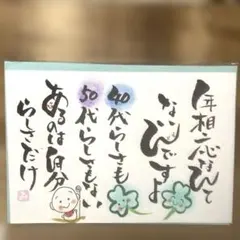 年相応なんて
ないんですよ
40代らしさも
50代らしさもない
あるのは自分
らしさだけ